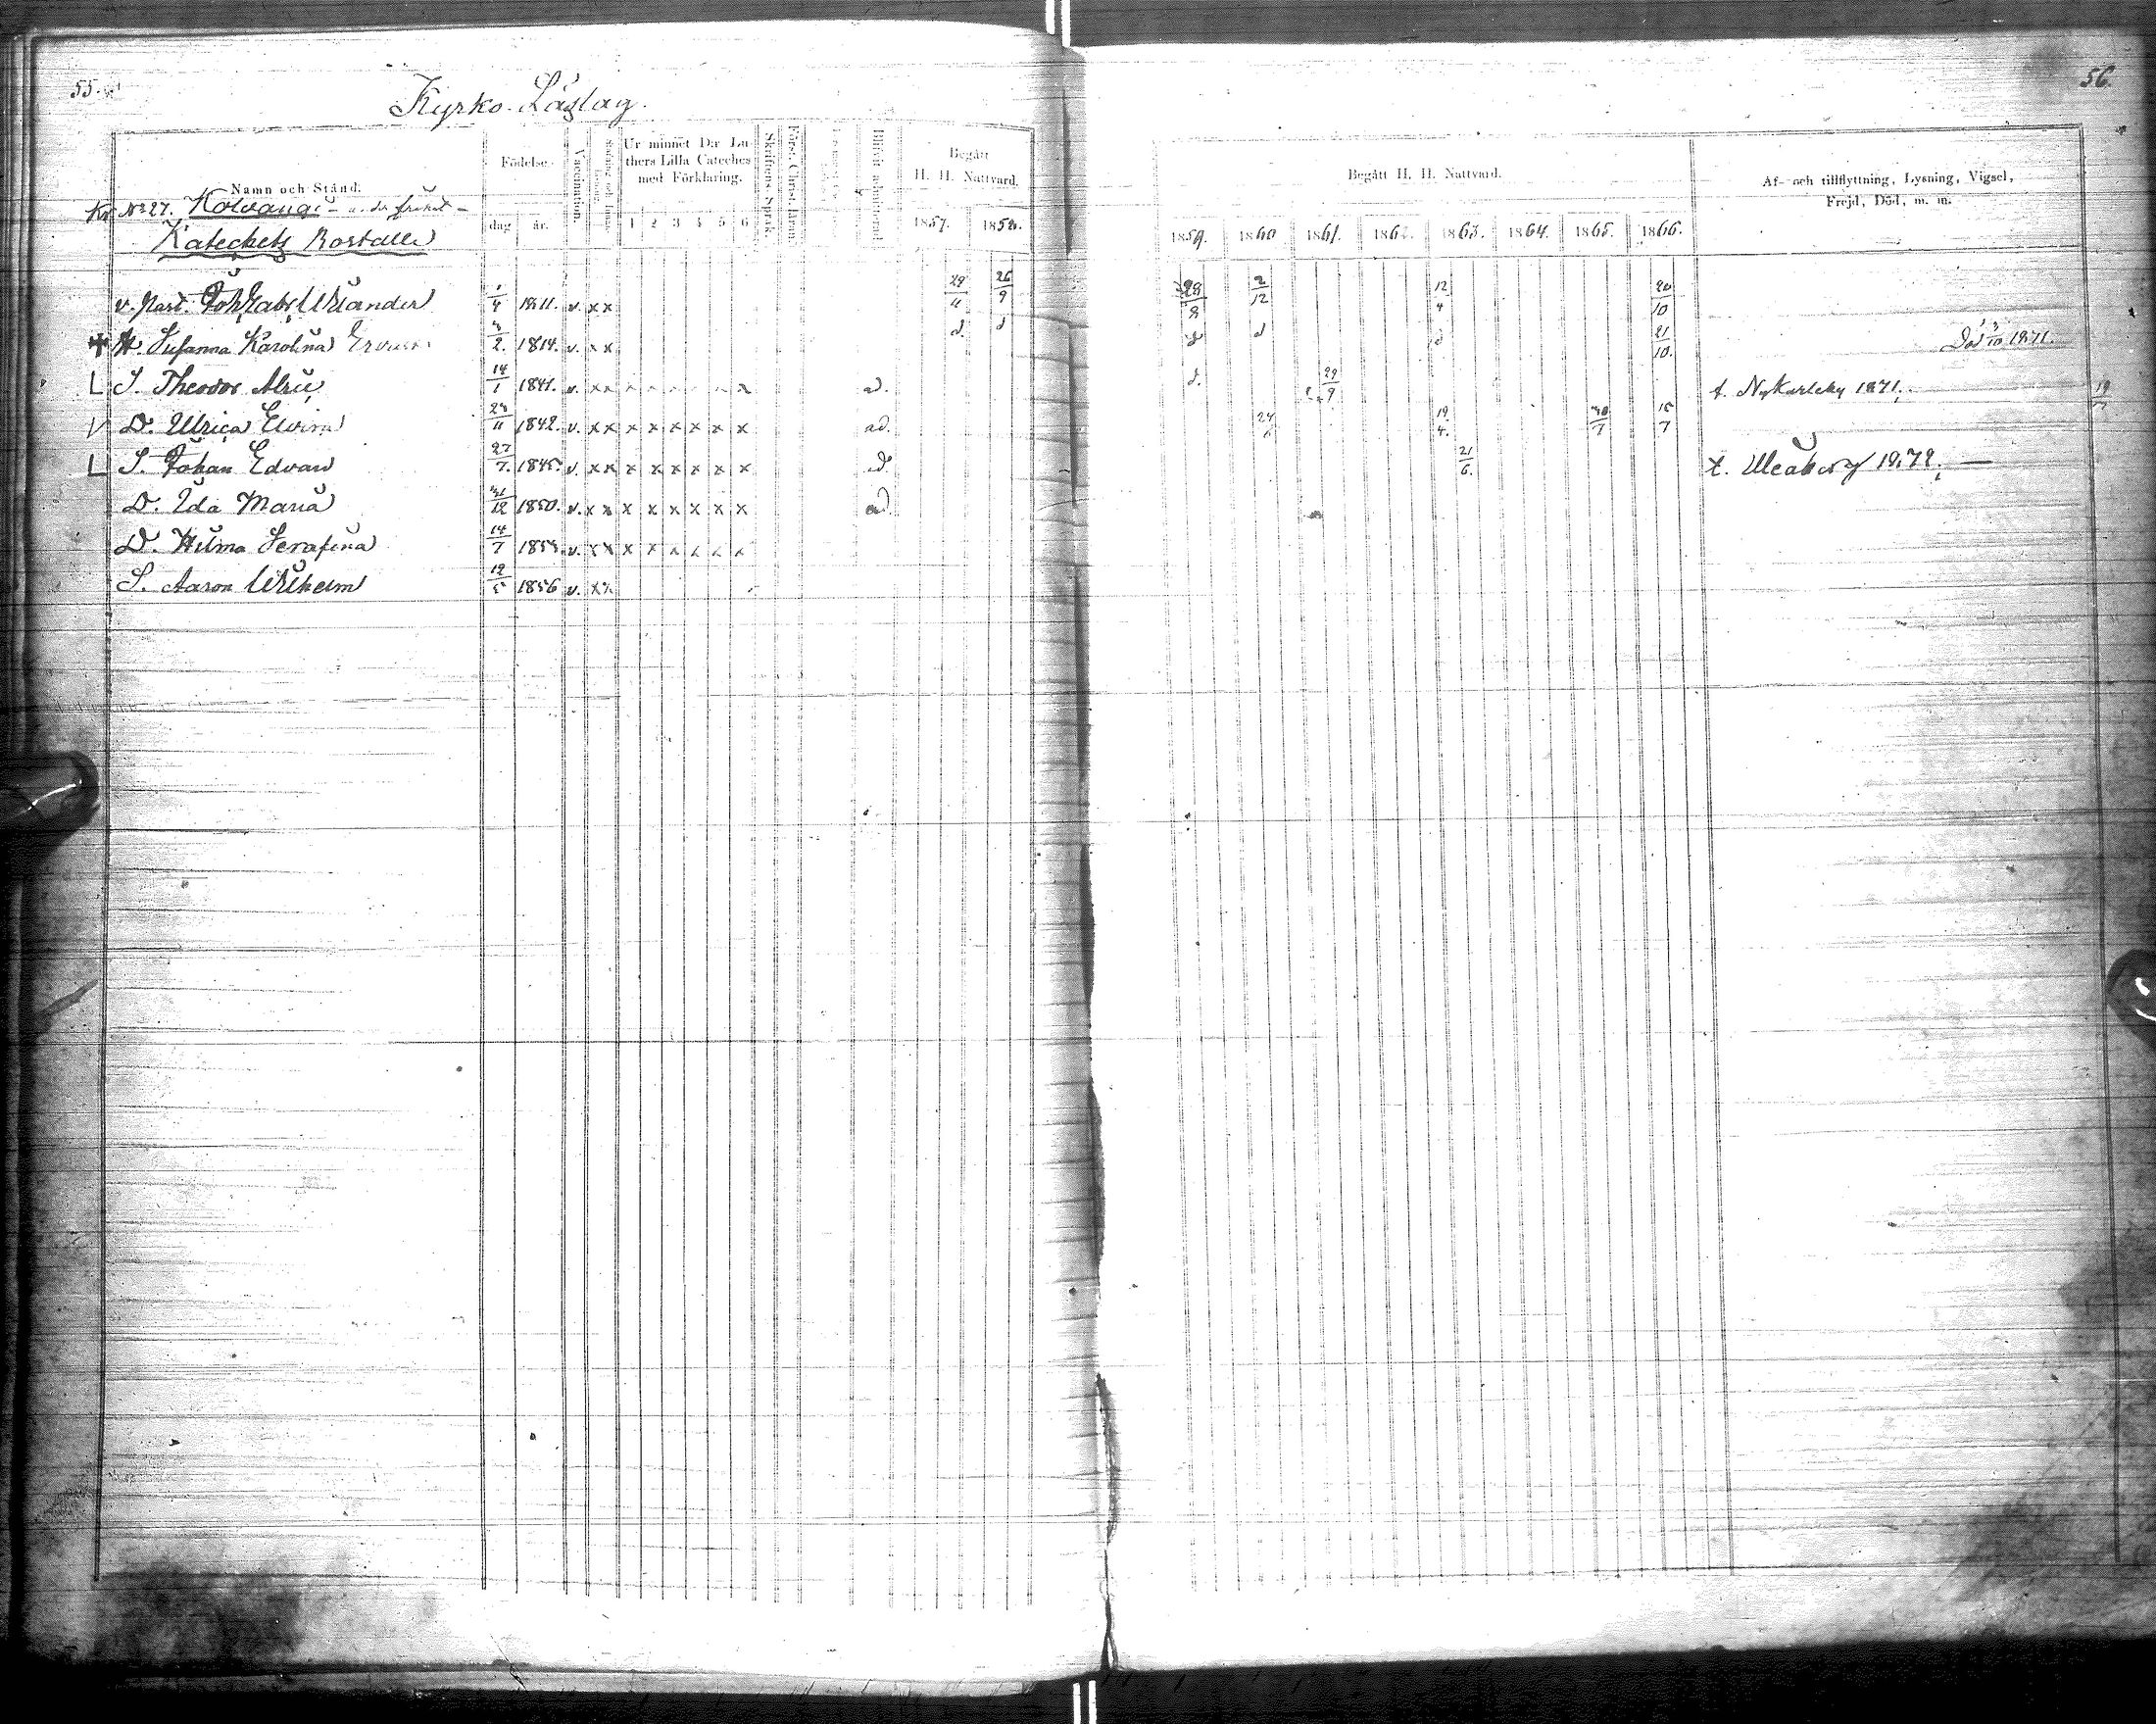 55.
Kyrko Läslag.
Namn och Stånd.
Födelse-
dag
år.
Vaccination.
Ur minnet D:r Lu-
thers Lilla Cateches
med Förklaring.
1 2 3 4 5 6
Skriftens Språk.
Först. Christ. läran.
Begått
H. H. Nattvard.
1857. 1858.
No 27. Kolvangi
Katechets Boställe
v. Past. Joh. Gabr. Wilander 1/4 1811. v. x x 29/11 26/9
H. Susanna Karolina 2. 1814. v. x x d d
S. Theodor Alric 14/1 1841. v. x x ad.
D. Ulrica Elvira 1842. v. x x x x x x x x ad.
S. Johan Edvard 27/7. 1845. v. x x x x x x x x ad.
D. Ida Maria 31/12 1850. v. x x x x x x x x ad
D. Hilma Serafina 14/7 v. x x x x x x x x
S. Aaron Wilhelm 12/5 1856 v. x x
56.
Begått H. H. Nattvard.
1859. 1860 1861. 1862. 1863. 1864. 1865. 1866.
Af- och tillflyttning, Lysning, Vigsel,
Frejd, Död, m. m.
28/8 2/12 12/4 20/10
d d d 21/10. Död 3/10 1871.
d. 29/9 t. Nykarleby 1871. 19
24 19/4. 30/7 15/7
21/6. t. Uleåborg 1872.